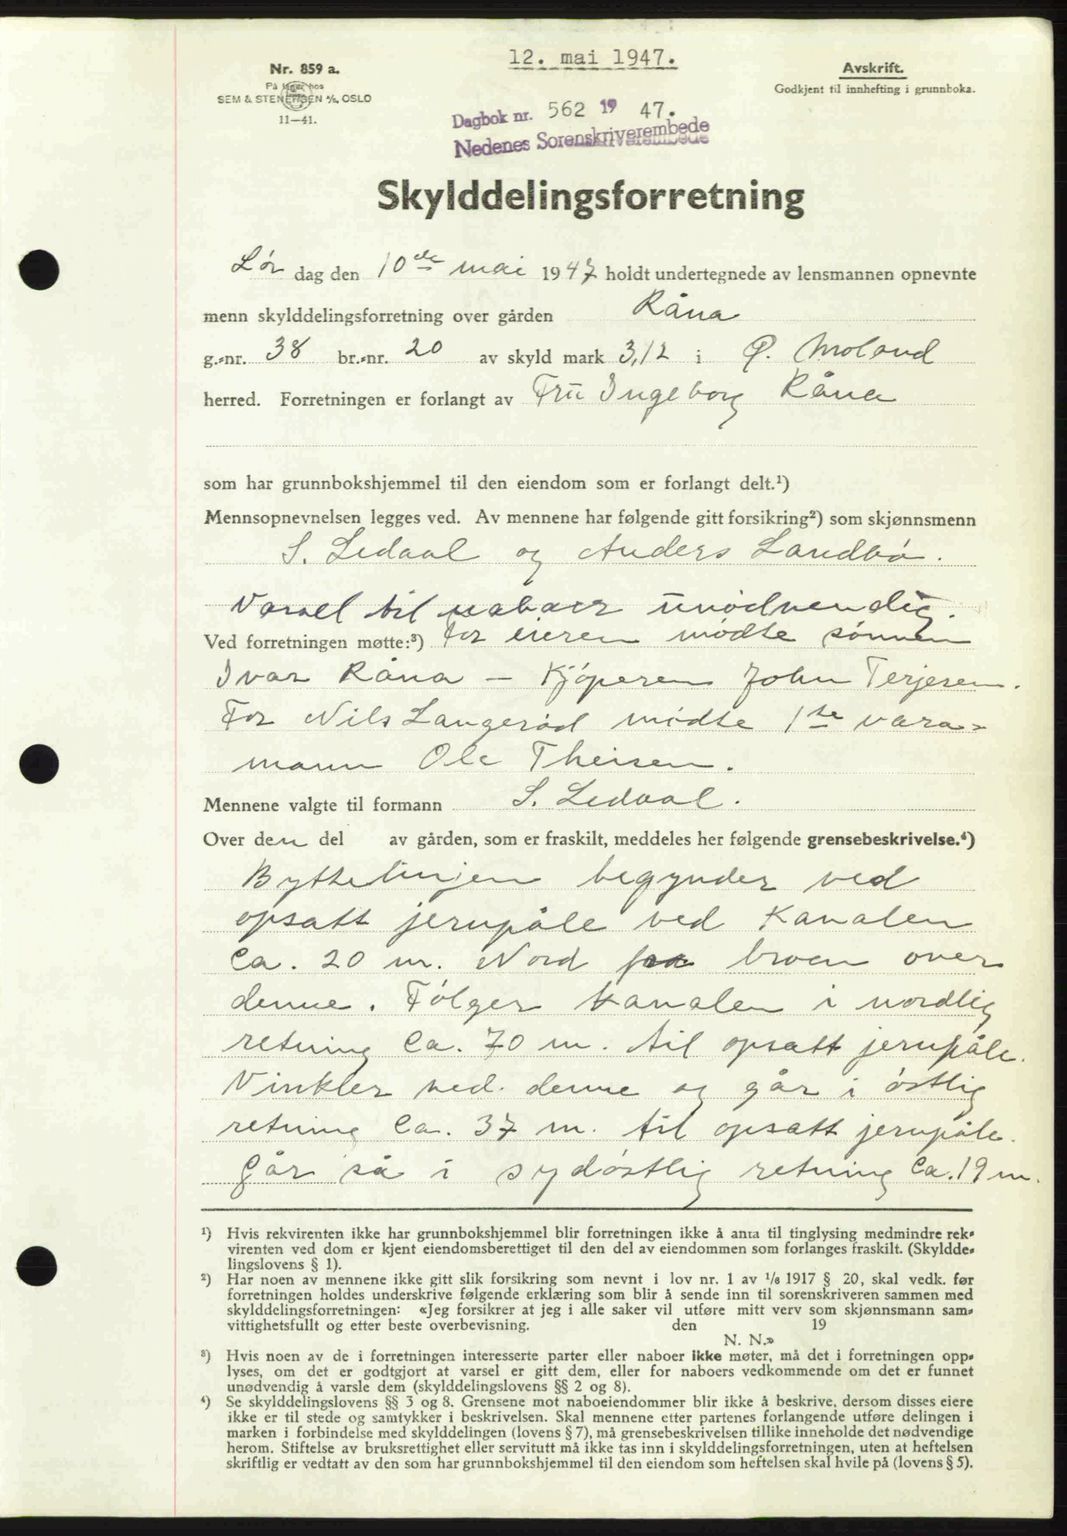 12. mai 1947.
Nr. 859 a.
På lager hos
SEM & STENERSEN A/S, OSLO
11—41.
Avskrift.
Godkjent til innhefting i grunnboka.
Dagbok nr. 562 19 47.
Nedenes Sorenskriverembede
Skylddelingsforretning
Lør dag den 10de mai 1947 holdt undertegnede av lensmannen opnevnte
menn skylddelingsforretning over gården Råna
g.-nr. 38 br.-nr. 20 av skyld mark 3,12 i Ø. Moland
herred. Forretningen er forlangt av Fru Ingeborg Råna
som har grunnbokshjemmel til den eiendom som er forlangt delt.¹)
Mennsopnevnelsen legges ved. Av mennene har følgende gitt forsikring²) som skjønnsmenn
S. Ledaal og Anders Landbø.
Varsel til naboer unødvendig.
Ved forretningen møtte:³) For eieren mødte sønnen
Ivar Råna — Kjøperen John Terjesen.
For Nils Langerød mødte 1ste vara-
mann Ole Theisen.
Mennene valgte til formann S. Ledaal.
Over den del av gården, som er fraskilt, meddeles her følgende grensebeskrivelse.⁴)
Byttelinjen begynder ved
opsatt jernpåle ved Kanalen
Ca. 20 m. Nord for broen over
denne. Følger Kanalen i nordlig
retning Ca. 70 m. til opsatt jernpåle.
Vinkler ved denne og går i østlig
retning Ca. 37 m. til opsatt jernpåle.
Går så i sydøstlig retning Ca. 19 m.
¹) Hvis rekvirenten ikke har grunnbokshjemmel blir forretningen ikke å anta til tinglysing medmindre rek-
virenten ved dom er kjent eiendomsberettiget til den del av eiendommen som forlanges fraskilt. (Skyldde-
lingslovens § 1).
²) Har noen av mennene ikke gitt slik forsikring som nevnt i lov nr. 1 av 1/8 1917 § 20, skal vedk. før
forretningen holdes underskrive følgende erklæring som blir å sende inn til sorenskriveren sammen med
skylddelingsforretningen: «Jeg forsikrer at jeg i alle saker vil utføre mitt verv som skjønnsmann sam-
vittighetsfullt og etter beste overbevisning. den 19
N. N.»
³) Hvis noen av de i forretningen interesserte parter eller naboer ikke møter, må det i forretningen opp-
lyses, om det er godtgjort at varsel er gitt dem, eller for naboers vedkommende om det er funnet
unødvendig å varsle dem (skylddelingslovens §§ 2 og 8).
⁴) Se skylddelingslovens §§ 3 og 8. Grensene mot naboeiendommer blir ikke å beskrive, dersom disses eiere
ikke er til stede og samtykker i beskrivelsen. Skal mennene etter partenes forlangende utføre delingen i
marken i forbindelse med skylddelingen (lovens § 7), må grensebeskrivelsen tillike inneholde det nødvendige
herom. Stiftelse av bruksrettighet eller servitutt må ikke tas inn i skylddelingsforretningen, uten at heftelsen
skriftlig er vedtatt av den som har grunnbokshjemmel til den eiendom som heftelsen skal hvile på (lovens § 5).